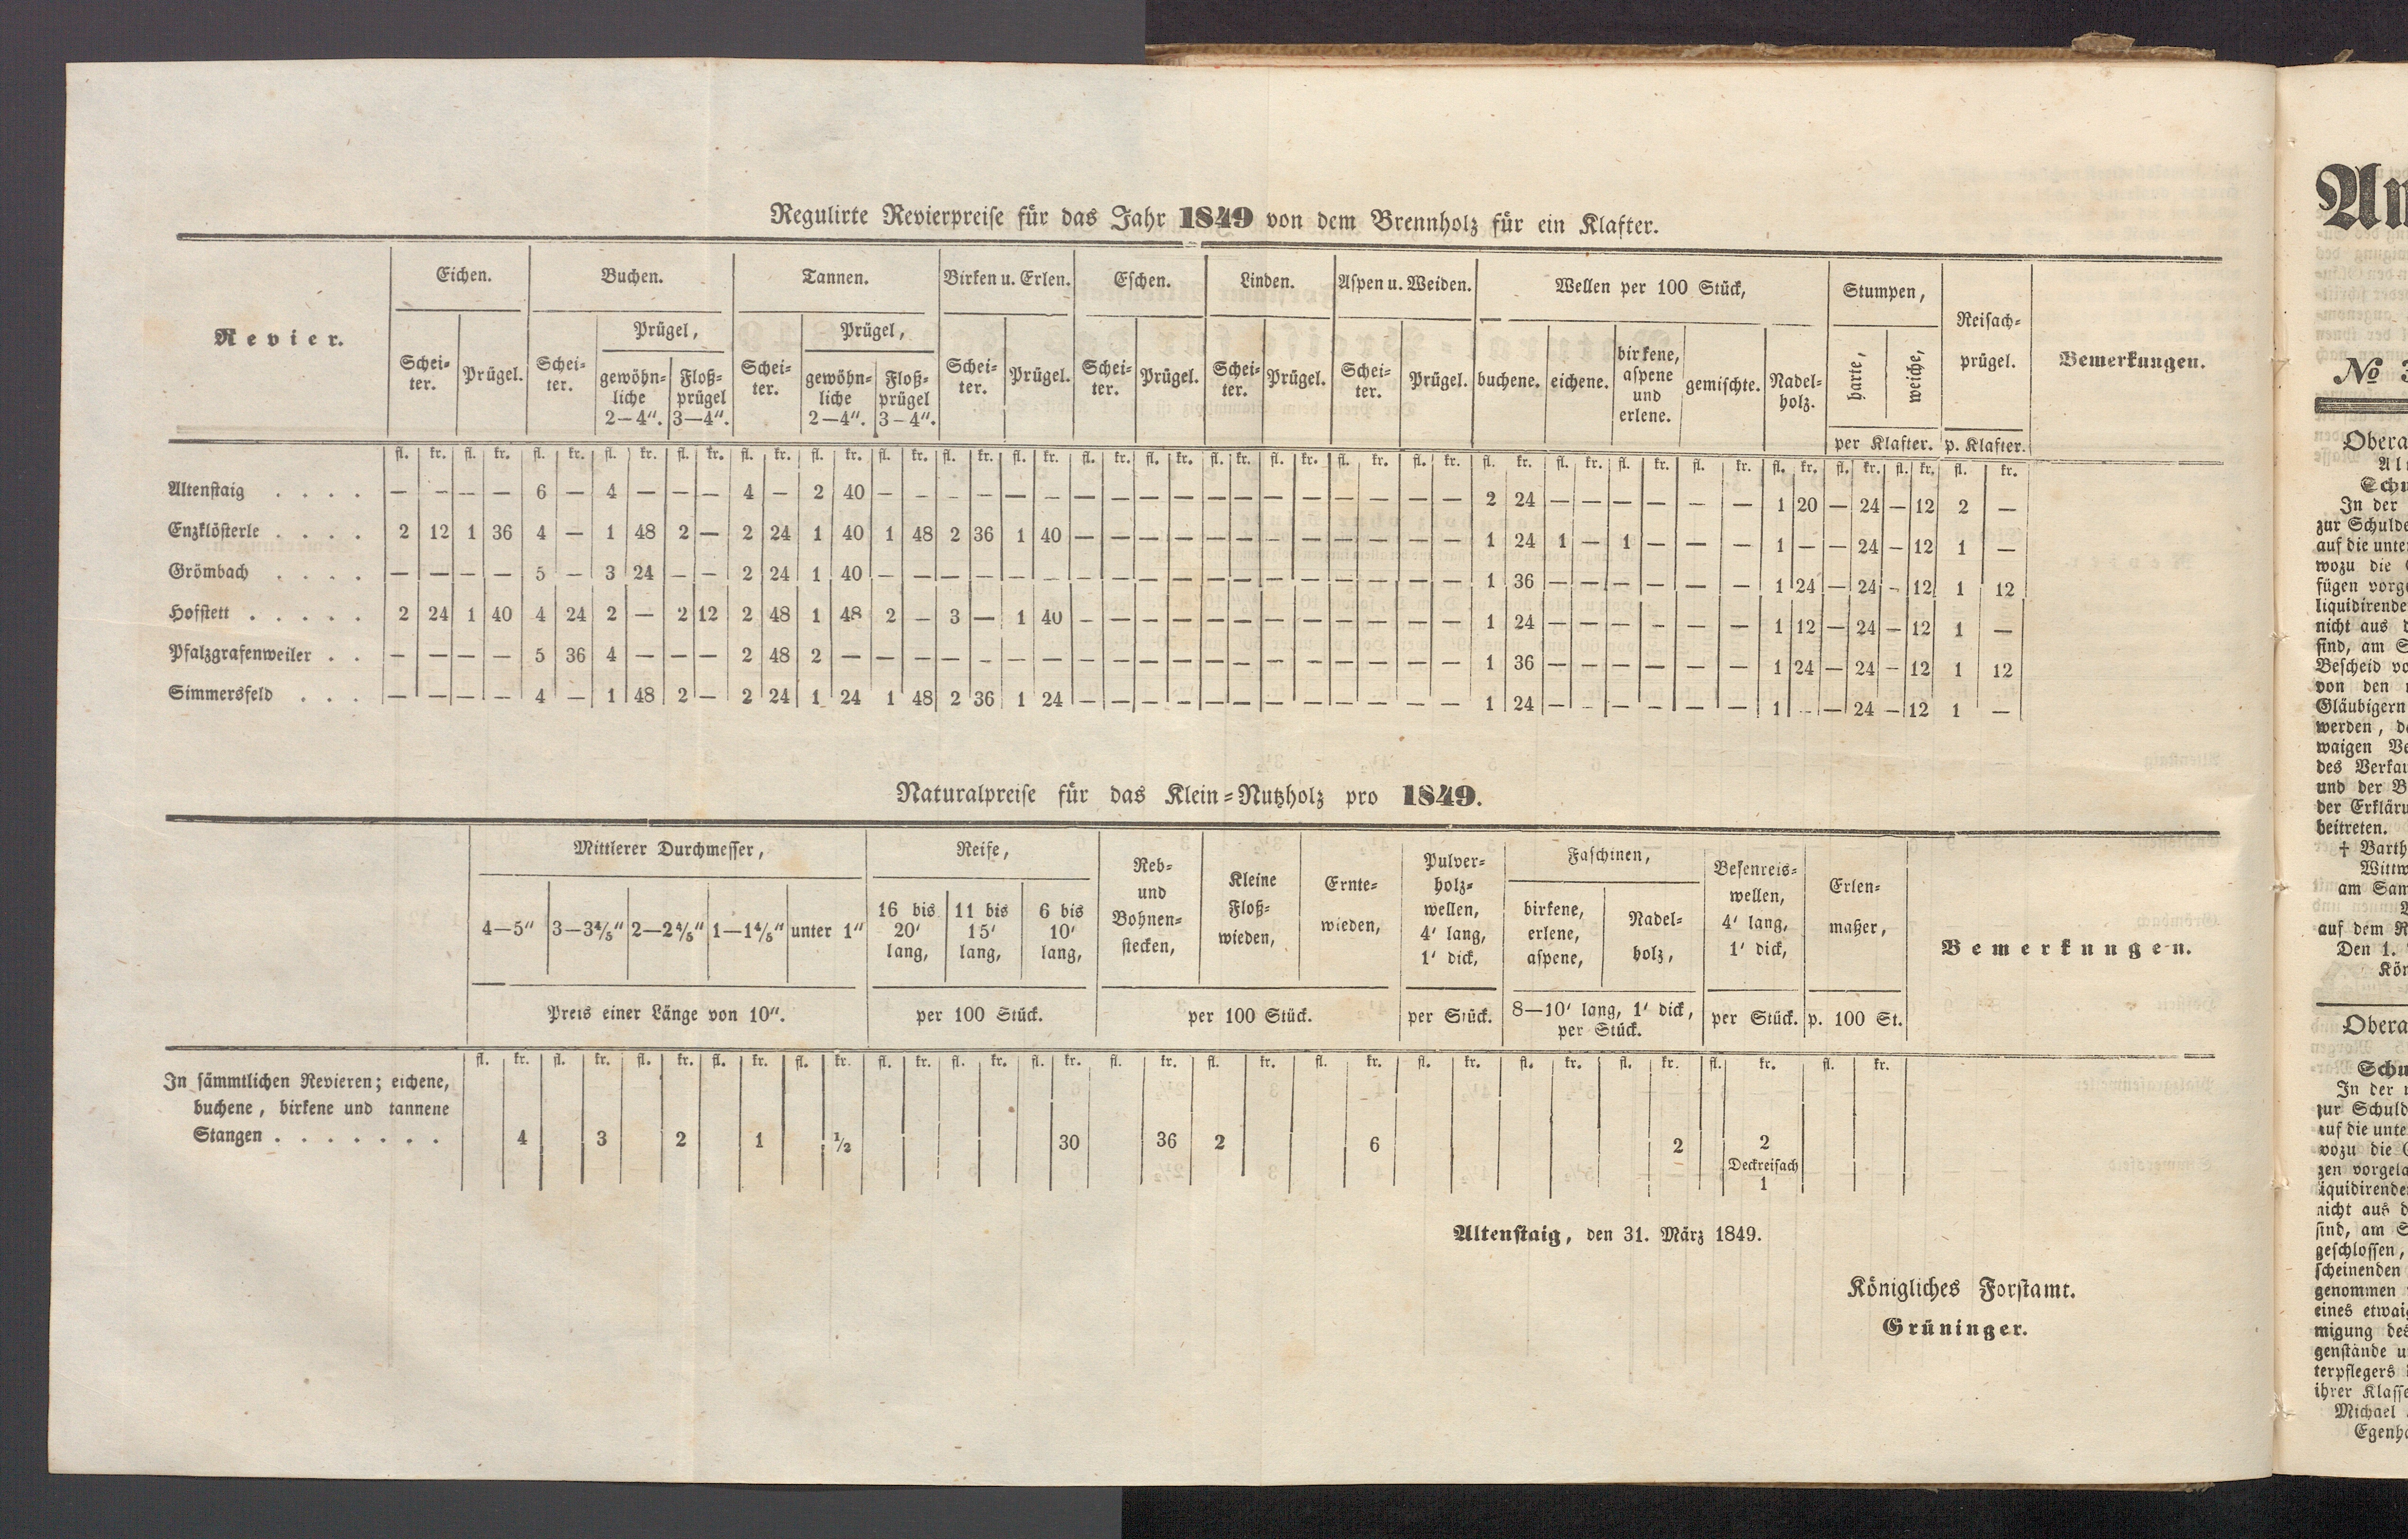 Regulirte Revierpreise für das Jahr 1849 von dem Brennholz für ein Klafter.
Revier. Eichen. Buchen. Tannen. Birken u. Erlen. Eschen. Linden. Aspen u. Weiden. Wellen per 100 Stück, Stumpen, Reisach-prügel. Bemerkungen.
Schei-ter. Prügel. Schei-ter. Prügel, gewöhn-liche 2—4". Floß-prügel 3—4". Schei-ter. Prügel, gewöhn-liche 2—4". Floß-prügel 3–4". Schei-ter. Prügel. Schei-ter. Prügel. Schei-ter. Prügel. Schei-ter. Prügel. buchene. eichene. birkene, aspene und erlene. gemischte. Nadel-holz. harte, weiche,
per Klafter. p. Klafter.
fl. kr. fl. kr. fl. kr. fl. kr. fl. kr. fl. kr. fl. kr. fl. kr. fl. kr. fl. kr. fl. kr. fl. kr. fl. kr. fl. kr. fl. kr. fl. kr. fl. kr. fl. kr. fl. kr. fl. kr. fl. kr. fl. kr. fl. kr. fl. kr.
Altenstaig . . . . — — — — 6 — 4 — — — 4 — 2 40 — — — — — — — — — — — — — — — — — — 2 24 — — — — — — 1 20 — 24 — 12 2 —
Enzklösterle . . . . 2 12 1 36 4 — 1 48 2 — 2 24 1 40 1 48 2 36 1 40 — — — — — — — — — — — — 1 24 1 — 1 — — — 1 — — 24 — 12 1 —
Grömbach . . . . — — — — 5 — 3 24 — — 2 24 1 40 — — — — — — — — — — — — — — — — — — 1 36 — — — — — — 1 24 — 24 — 12 1 12
Hofstett . . . . . 2 24 1 40 4 24 2 — 2 12 2 48 1 48 2 — 3 — 1 40 — — — — — — — — — — — — 1 24 — — — — — — 1 12 — 24 — 12 1 —
Pfalzgrafenweiler . . — — — — 5 36 4 — — — 2 48 2 — — — — — — — — — — — — — — — — — — — 1 36 — — — — — — 1 24 — 24 — 12 1 12
Simmersfeld . . . — — — — 4 — 1 48 2 — 2 24 1 24 1 48 2 36 1 24 — — — — — — — — — — — — 1 24 — — — — — — 1 — — 24 — 12 1 —
Naturalpreise für das Klein-Nutzholz pro 1849.
Mittlerer Durchmesser, Reife, Reb- und Bohnen-stecken, Kleine Floß-wieden, Ernte-wieden, Pulver-holz-wellen, 4' lang, 1' dick, Faschinen, Besenreis-wellen, 4' lang, 1' dick, Erlen-maßer, Bemerkungen.
4—5" 3—3⅘" 2—2⅘" 1—1⅘" unter 1" 16 bis 20' lang, 11 bis 15' lang, 6 bis 10' lang, birkene, erlene, aspene, Nadel-holz,
Preis einer Länge von 10". per 100 Stück. per 100 Stück. per Stück. 8—10' lang, 1' dick, per Stück. per Stück. p. 100 St.
fl. kr. fl. kr. fl. kr. fl. kr. fl. kr. fl. kr. fl. kr. fl. kr. fl. kr. fl. kr. fl. kr. fl. kr. fl. kr. fl. kr. fl. kr. fl. kr.
In sämmtlichen Revieren; eichene,
buchene, birkene und tannene
Stangen . . . . . . . 4 3 2 1 ½ 30 36 2 6 2 2
Deckreisach
1
Altenstaig, den 31. März 1849.
Königliches Forstamt.
Grüninger.
An
№ 3
Obera
Al
Schu
In der
zur Schulde
auf die unte
wozu die
fügen vorge
liquidirende
nicht aus d
sind, am S
Bescheid vo
von den
Gläubigern
werden, da
waigen Ve
des Verkau
und der B
der Erkläru
beitreten.
† Barth
Wittw
am Sam
auf dem R
Den 1.
Kön
Obera
Schu
In der
zur Schuld
auf die unte
wozu die
gen vorgela
liquidirende
nicht aus d
sind, am S
geschlossen,
scheinenden
genommen
eines etwaig
migung des
genstände u
terpflegers
ihrer Klasse
Michael
Egenha